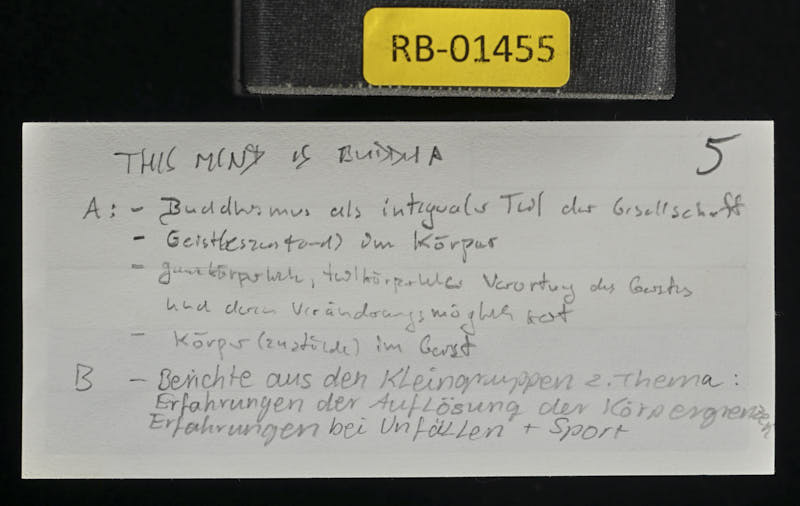 RB-01455
5
THIS MIND IS BUDDHA
A: - Buddhismus als integraler Teil der Gesellschaft
- Geist(eszustand) im Körper
- ganzkörperliche, teilkörperliche Verortung des Geistes
und deren Veränderungsmöglichkeit
- Körper(zustände) im Geist
B - Berichte aus den Kleingruppen z. Thema:
Erfahrungen der Auflösung der Körpergrenzen
Erfahrungen bei Unfällen + Sport